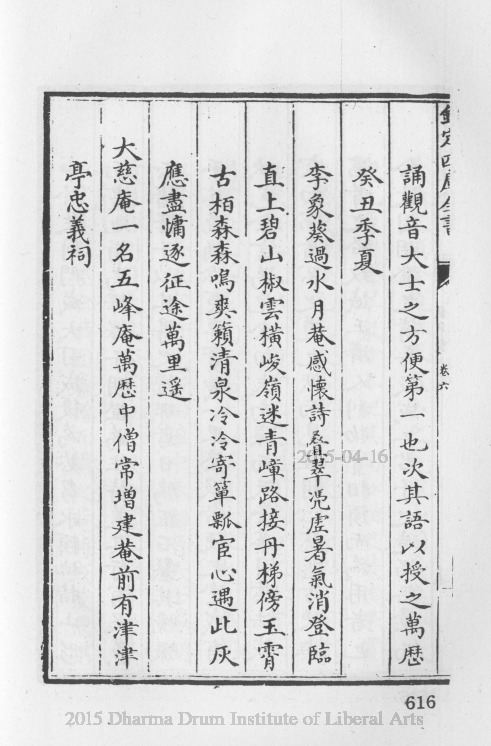 欽定四庫全書
卷六
誦觀音大士之方便第 也次其語以授之萬歴
癸丑季夏
李象葵過水月菴感懷詩 疊翠凭虛暑氣消登臨
直上碧山椒雲橫峻嶺迷青嶂路接丹梯傍玉霄
古栢森森鳴爽籟清泉泠泠寄簞瓢宦心遇此灰
應盡慵逐征途萬里遥
大慈庵一名五峰庵萬歴中僧常增建菴前有津津
亭忠義祠
2015-04-16
616
2015 Dharma Drum Institute of Liberal Arts